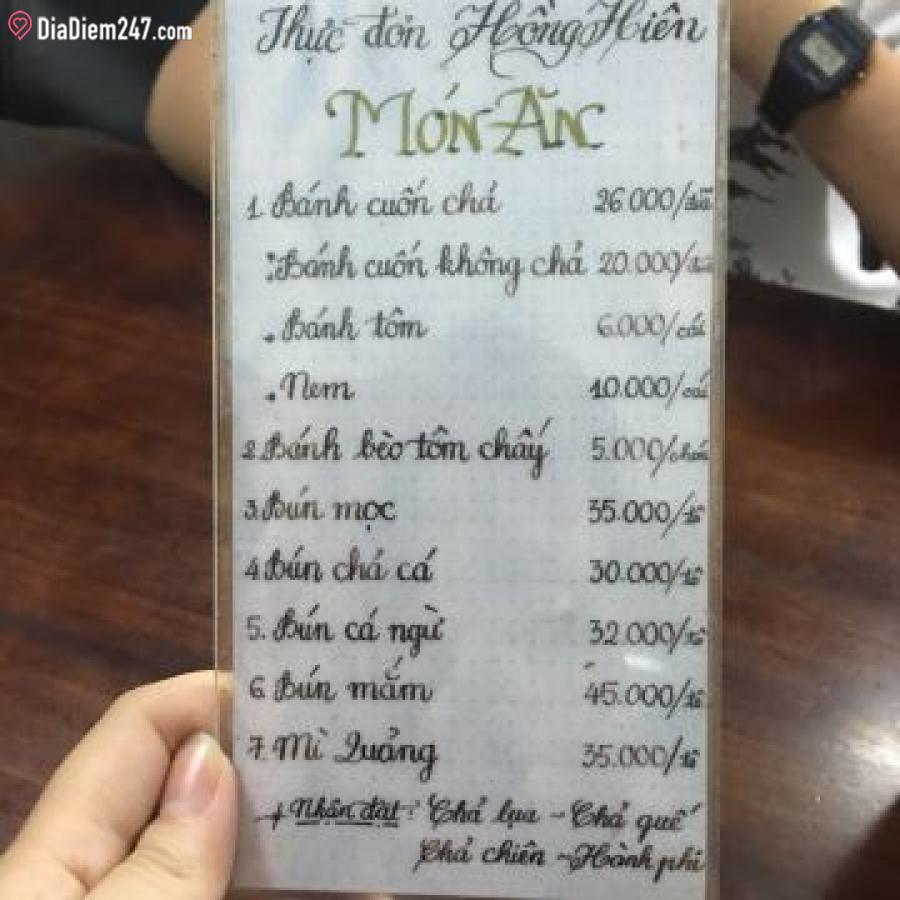 DiaDiem247.com
Thực đơn Hồng Hiên
MÓN ĂN
1. Bánh cuốn chả 26.000/dĩa
Bánh cuốn không chả 20.000/dĩa
. Bánh tôm 6.000/cái
. Nem 10.000/cái
2 Bánh bèo tôm chấy 5.000/chén
3. Bún mọc 35.000/tô
4 Bún chả cá 30.000/tô
5. Bún cá ngừ 32.000/tô
6 Bún mắm 45.000/tô
7. Mì Quảng 35.000/tô
+ Nhận đặt: Chả lụa - Chả quế
Chả chiên - Hành phi